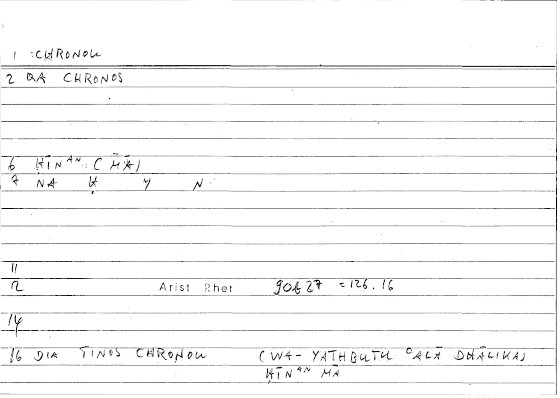 1 :CHRONOU
2 QA CHRONOS
6 ḤĪNᴬᴺ: (MĀ)
7 NA Ḥ Y N
11
12 Arist Rhet 90b27 =126.16
14
16 DIA TINOS CHRONOU (WA-YATHBUTU ᶜALĀ DHĀLIKA)
ḤĪNᴬᴺ MĀ